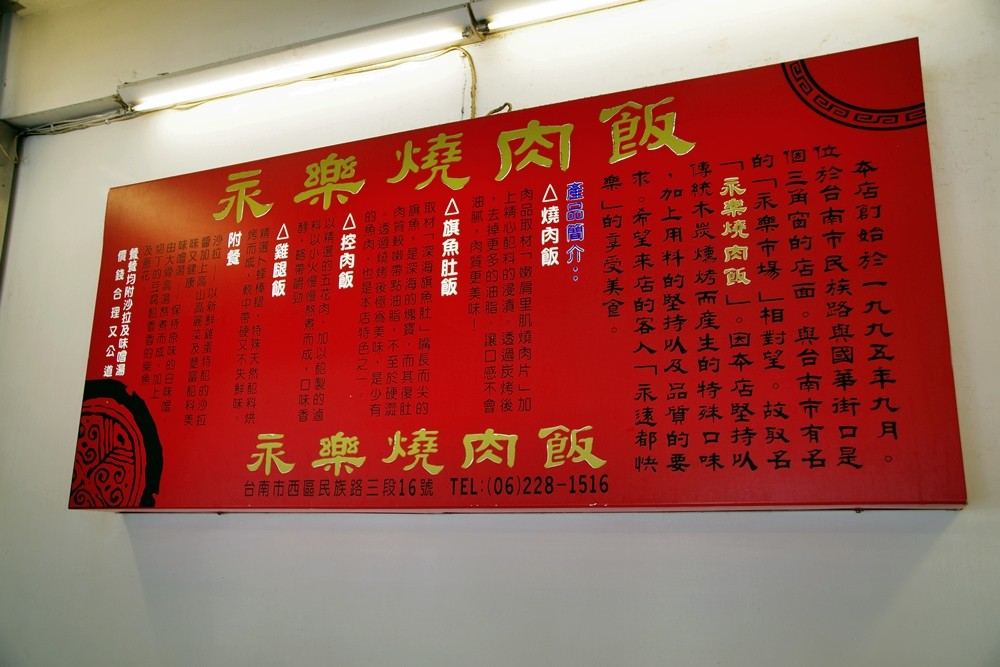 永樂燒肉飯
本店創始於一九九五年九月。
位於台南市民族路與國華街口是
個三角窗的店面。與台南市有名
的「永樂市場」相對望。故取名
「永樂燒肉飯」。因本店堅持以
傳統木炭燻烤而產生的特殊口味
，加上用料的堅持以及品質的要
求。希望來店的客人「永遠都快
樂」的享受美食。
產品簡介：
△燒肉飯
肉品取材「嫩肩里肌燒肉片」加
上精心配料的浸漬，透過炭烤後
，去掉更多的油脂，讓口感不會
油膩，肉質更美味！
△旗魚肚飯
取材「深海旗魚肚」嘴長而尖的
旗魚，是深海的瑰寶，而其腹肚
肉質較嫩帶點油脂，不至於硬澀
，透過燒烤後極為美味，是少有
的魚肉，也是本店特色之一。
△控肉飯
以精選的五花肉，加以配製的滷
料以小火慢慢熬煮而成，口味香
醇，略帶嚼勁。
△雞腿飯
精選卜蜂棒腿，特殊天然配料烘
烤而成，軟中帶硬又不失鮮味。
附餐
沙拉——以新鮮雞蛋特配的沙拉
醬加上高山高麗菜及豐富配料美
味又健康
味噌湯——保持原味的白味噌
由大骨高湯熬煮而成，加上
切丁的豆腐配香香的柴魚
及蔥花
餐餐均附沙拉及味噌湯
價錢合理又公道
永樂燒肉飯
台南市西區民族路三段16號 TEL:(06)228-1516